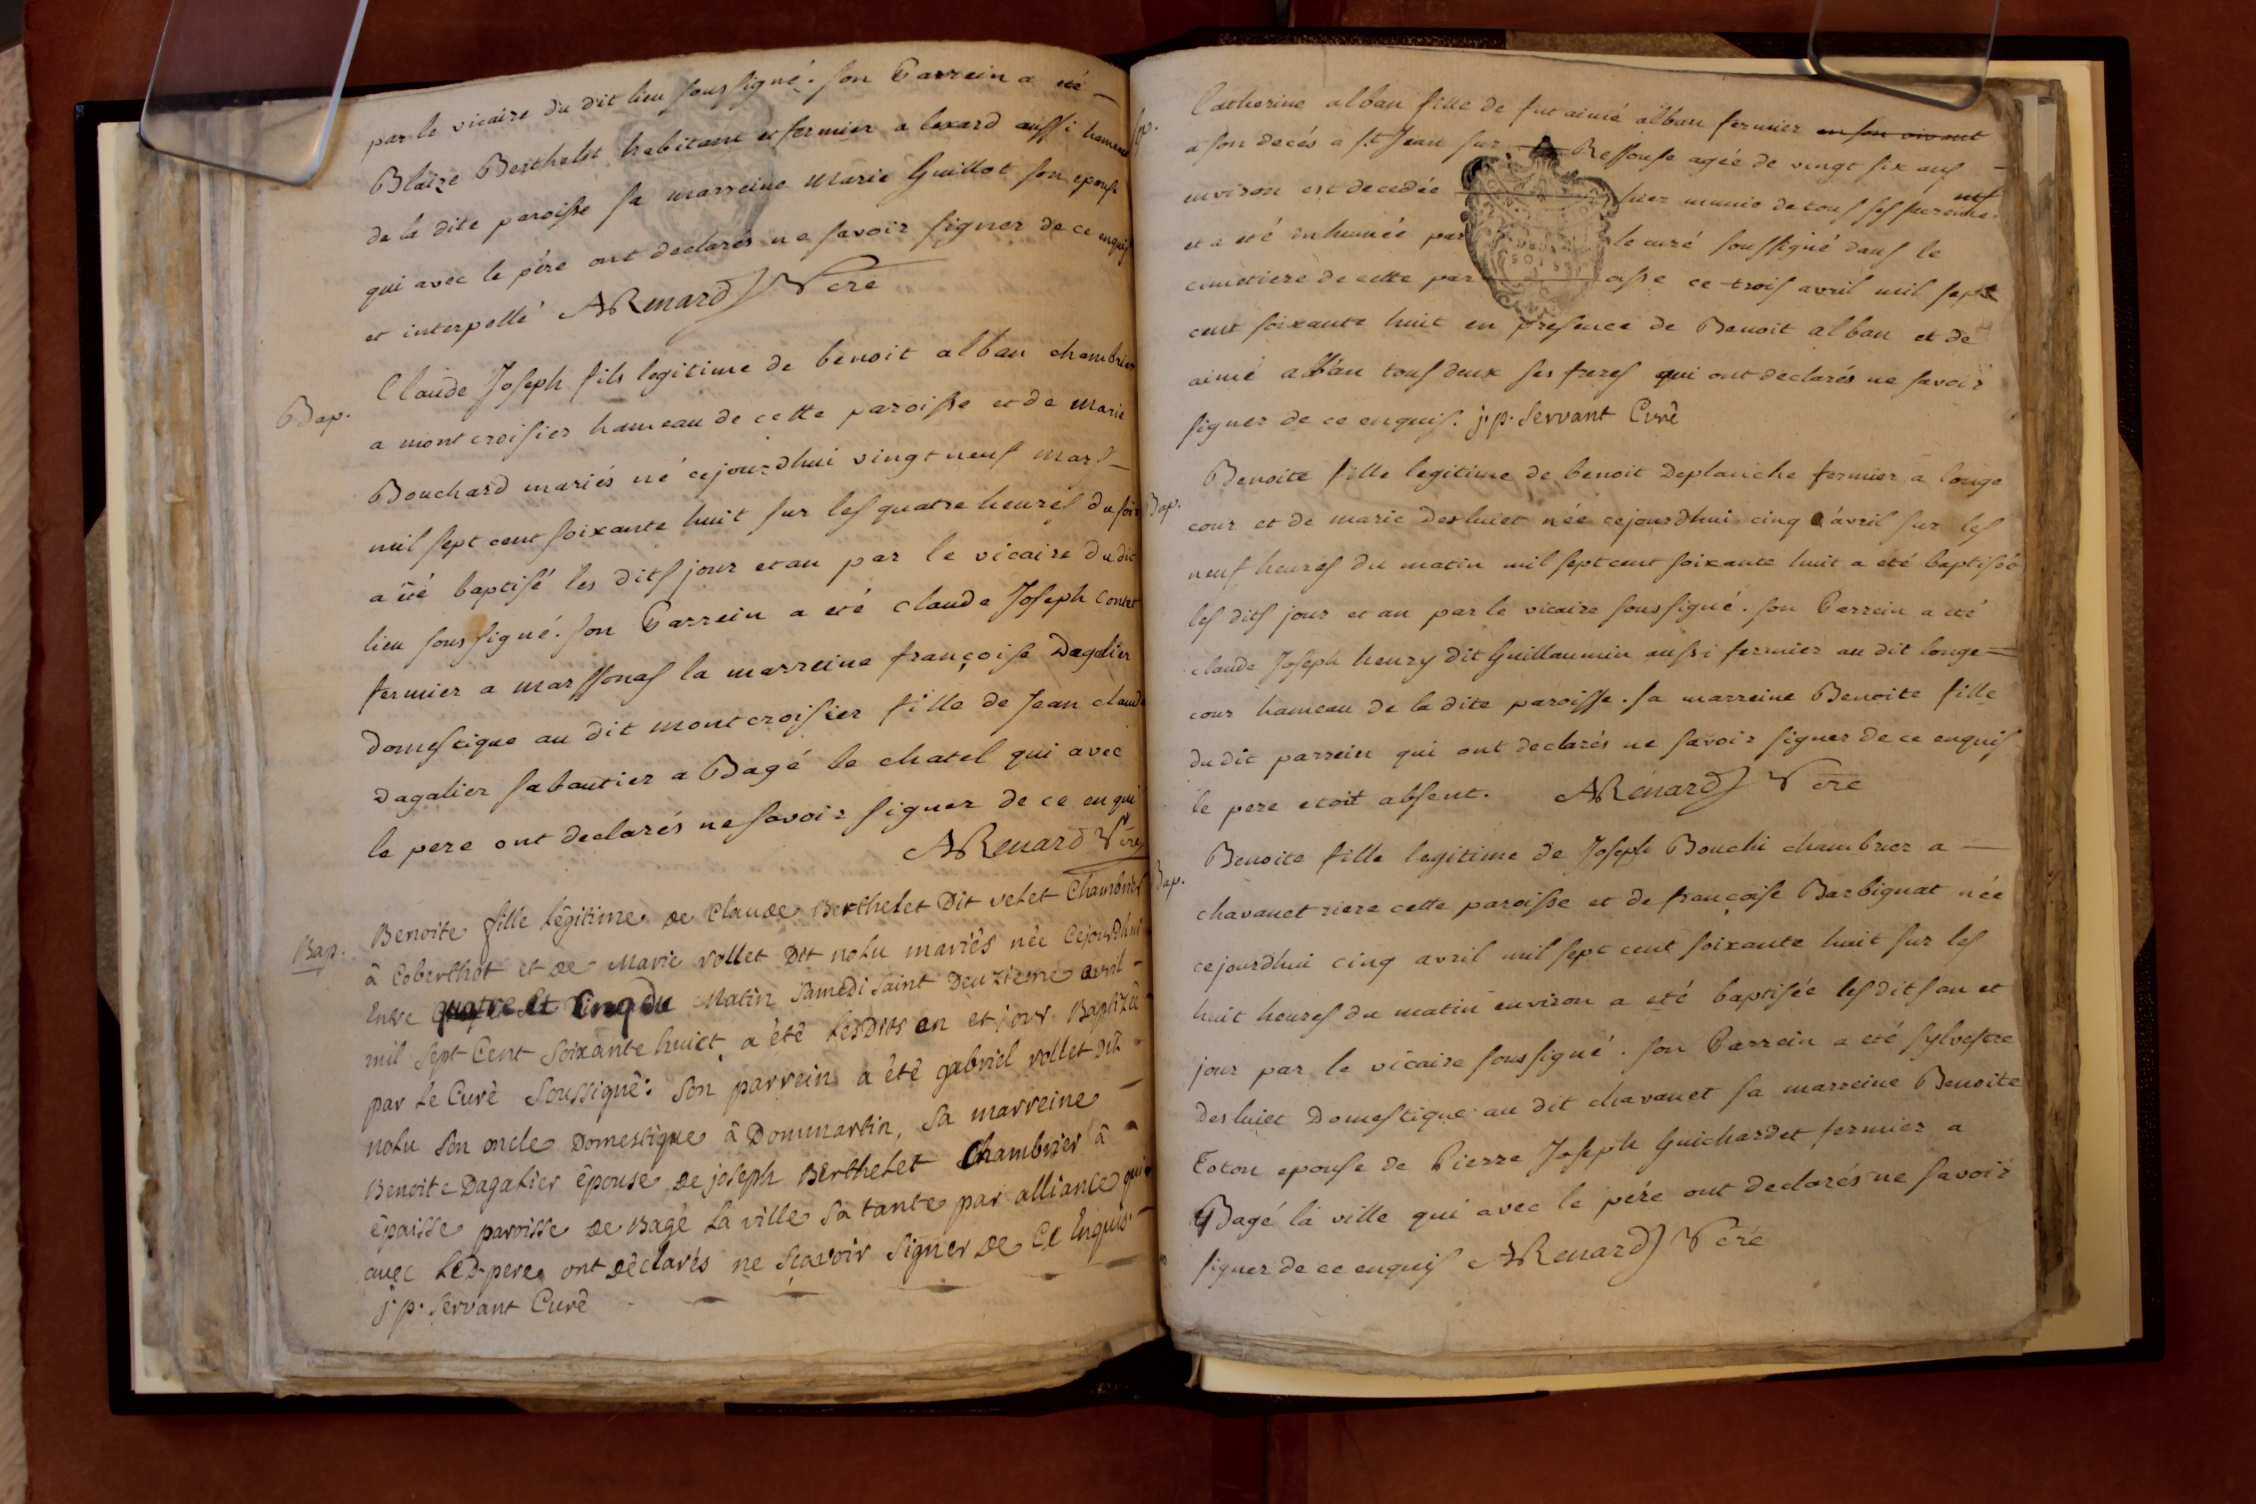 par le vicaire du dit lieu soussigné. son Parrein a eté
Blaize Berthelet habitant et fermier a lexard aussi hameau
de la dite paroisse sa marreine Marie Guillot son epouse
qui avec le pére ont declarés ne savoir signer de ce enquis
et interpellé ARenard Vcre
Bap.
Claude Joseph fils legitime de benoit alban chambrier
a montcroisier hameau de cette paroisse et de Marie
Bouchard mariés né cejourdhui vingt neuf mars
mil sept cent soixante huit sur les quatre heures du soir
a été baptisé les dits jour et an par le vicaire du dit
lieu soussigné. son Parrein a eté claude Joseph Contet
fermier a marssonas la marreine françoise Dagalier
Domestique au dit montcroisier fille de Jean claude
Dagalier sabautier a Bagé le chatel qui avec
le pere ont declarés ne savoir signer de ce enqui
ARenard Vcre
Bap.
Benoite fille légitime de Claude Berthelet Dit velet Chambrier
â Coberthot et de Marie vollet Dit nolu mariés née Cejourdhui
Entre quatre et Cinq du Matin Samedi Saint Deuzieme avril
mil Sept Cent Soixante huict a été Lesdits an et jour Baptizée
par Le Curé Soussigné: Son parrein a été gabriel vollet Dit
nolu Son oncle Domestique â Dommartin, Sa marreine
Benoite Dagalier épouse de joseph Berthelet Chambrier â
épaisse paroisse de Bagé La ville Sa tante par alliance qui
avec LeD. pere ont déclarés ne Sçavoir Signer de Ce Enquis.
j. p. Servant Curé
Catherine alban fille de fut aimé alban fermier en son vivant
a son decés a st Jean sur Ressouse agée de vingt six ans
environ est decedée hier munie de tous ses sacrements
et a eté inhumée par le curé soussigné dans le
cimetiere de cette paroisse ce trois avril mil sept
cent soixante huit en presence de Benoit alban et de
aimé alban tous deux ses freres qui ont declarés ne savoir
signer de ce enquis. j. p. Servant Curé
Bap.
Benoite fille legitime de benoit Deplanche fermier a longe
cour et de marie Desluiet née cejourdhui cinq avril sur les
neuf heures du matin mil sept cent soixante huit a eté baptisée
les dits jour et an par le vicaire soussigné. son Parrein a eté
claude Joseph henry dit Guillaumin aussi fermier au dit longe=
cour hameau de la dite paroisse. sa marreine Benoite fille
du dit parrein qui ont declarés ne savoir signer de ce enquis
le pere etoit absent. ARenard Vcre
Bap.
Benoite fille legitime de Joseph Bouchi chambrier a
chavanet riere cette paroisse et de françoise Barbignat née
cejourdhui cinq avril mil sept cent soixante huit sur les
huit heures du matin environ a eté baptisée les dits an et
jour par le vicaire soussigné. son Parrein a eté sylvestre
Desluiet Domestique au dit chavanet sa marreine Benoite
Toton epouse de Pierre Joseph Guichardet fermier a
Bagé la ville qui avec le pére ont declarés ne savoir
signer de ce enquis ARenard Vcré